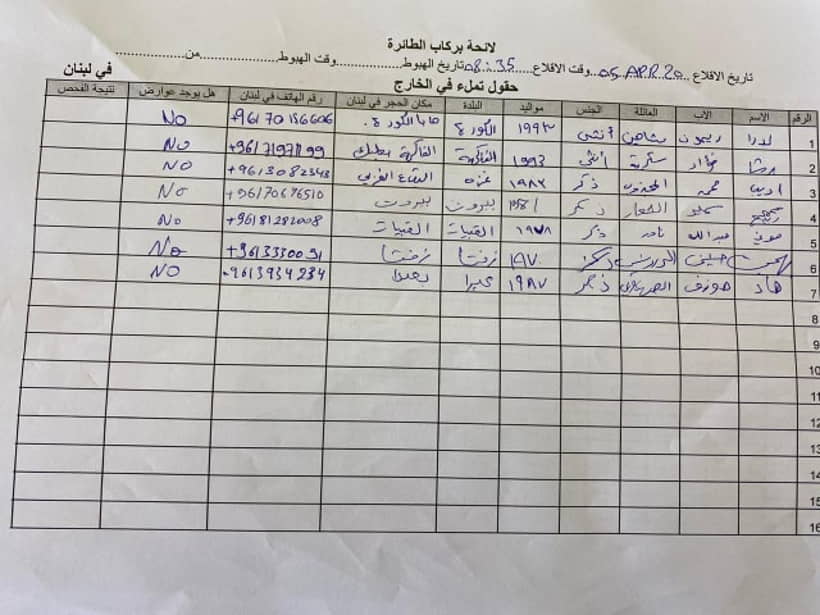 لائحة بركاب الطائرة
تاريخ الاقلاع ...05 APR 20... وقت الاقلاع ...08:35... تاريخ الهبوط .................. وقت الهبوط .................. من ..................
حقول تملء في الخارج في لبنان
الرقم الاسم الاب العائلة الجنس مواليد البلدة مكان الحجر في لبنان رقم الهاتف في لبنان هل يوجد عوارض نتيجة الفحص
1 ريمون شاهين أنثى ١٩٩٣ الكورة الكورة NO
2 رشا فؤاد سكرية أنثى 1993 الفاكهة الفاكهة بعلبك +96171971199 NO
3 اديب محمد ذكر ١٩٨٢ غزه البقاع الغربي +9613082343 NO
4 سميح الشعار ذكر 1981 بيروت بيروت +96170676510 NO
5 عبدالله نادر ذكر ١٩٧٨ القبيات القبيات +96181282008 No
6 حسين ذكر زفتا زفتا +9613330091 No
7 جوزف ذكر ١٩٨٧ بعبدا +9613934234 NO
8
9
10
11
12
13
14
15
16